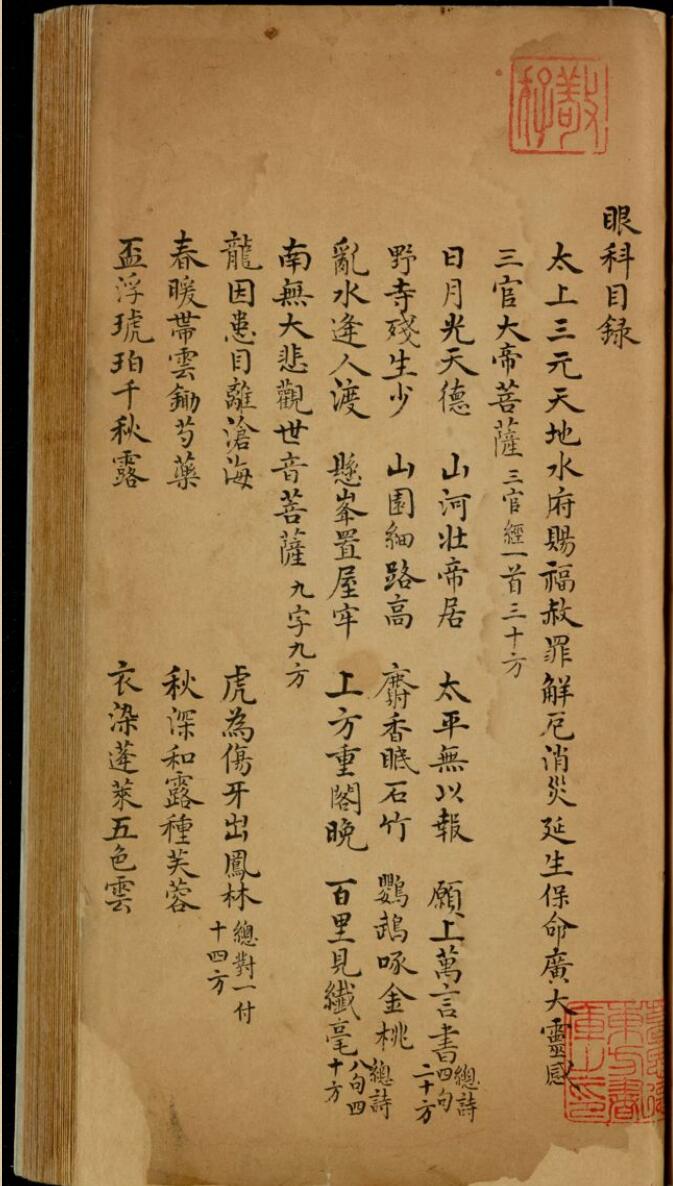 眼科目録
太上三元天地水府賜福赦罪解厄消災延生保命廣大靈感
三官大帝菩薩 三官經一首三十方
日月光天德 山河壯帝居 太平無以報 願上萬言書 總詩四句二十方
野寺殘生少 山園細路高 麝香眠石竹 鸚鵡啄金桃
亂水逢人渡 懸峯置屋牢 上方重閣晚 百里見纖毫 總詩八句四十方
南無大悲觀世音菩薩 九字九方
龍因患目離滄海 虎為傷牙出鳳林 總對一付十四方
春暖帶雲鋤芍藥 秋深和露種芙蓉
盃浮琥珀千秋露 衣染蓬萊五色雲